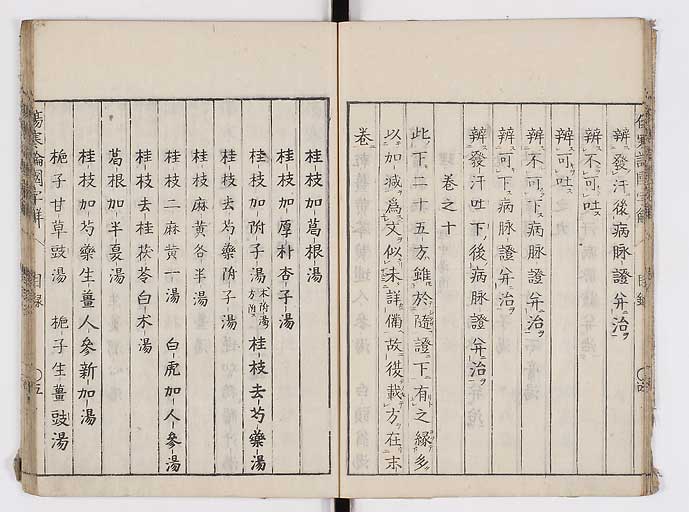 辨發汗後病脉證并治
辨不可吐
辨可吐
辨不可下病脉證并治
辨可下病脉證并治
辨發汗吐下後病脉證并治
卷之十
此下二十五方雖於隨證下有之緣多
以加減爲文似未詳備故復載方在末
卷
桂枝加葛根湯
桂枝加厚朴杏子湯
桂枝加附子湯朮附湯方附 桂枝去芍藥湯
桂枝去芍藥附子湯
桂枝麻黄各半湯
桂枝二麻黄一湯 白虎加人參湯
桂枝去桂茯苓白朮湯
葛根加半夏湯
桂枝加芍藥生薑人參新加湯
梔子甘草豉湯 梔子生薑豉湯
傷寒論國字解 目録 五